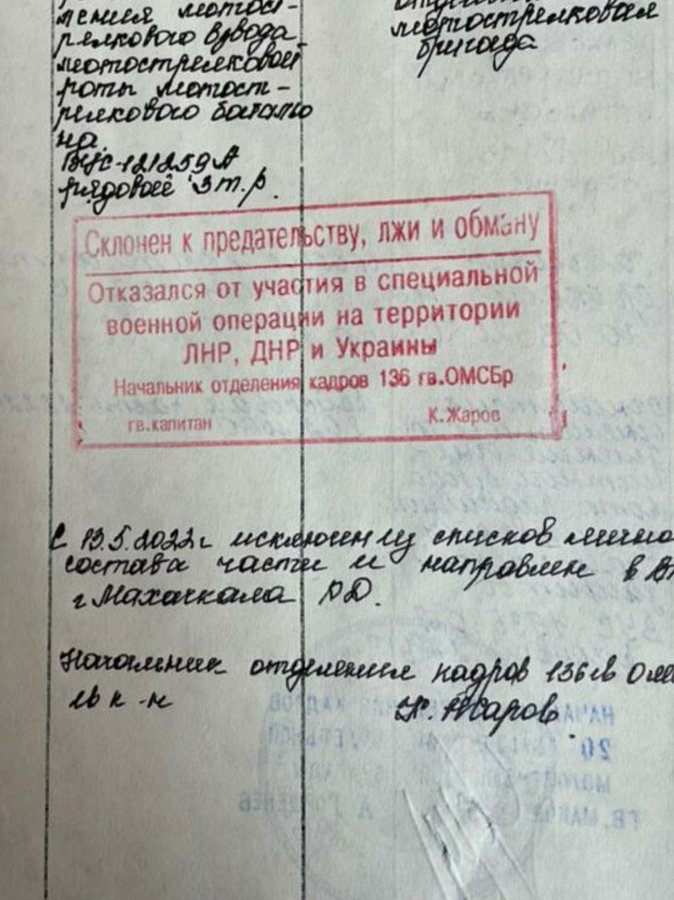 ления мотост-
релкового взвода
мотострелковой
роты мотост-
релкового батальо
на.
ВУС-121259А
рядовой 3 т.р.
мотострелковая
бригада
Склонен к предательству, лжи и обману
Отказался от участия в специальной
военной операции на территории
ЛНР, ДНР и Украины
Начальник отделения кадров 136 гв.ОМСБр
гв.капитан К.Жаров
С 13.5.2022 г исключен из списков лично
состава части и направлен в В
г Махачкала РД.
Начальник отделения кадров 136 гв ОМ
К. Жаров